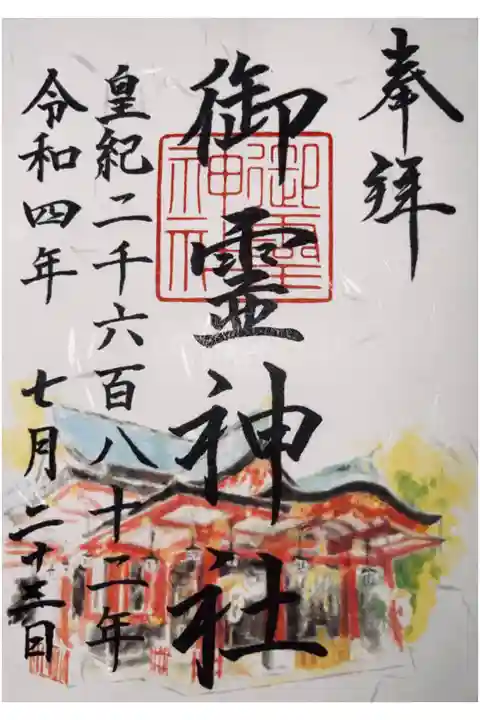 奉拝
御霊神社
御靈神社
皇紀二千六百八十二年
令和四年 七月二十三日